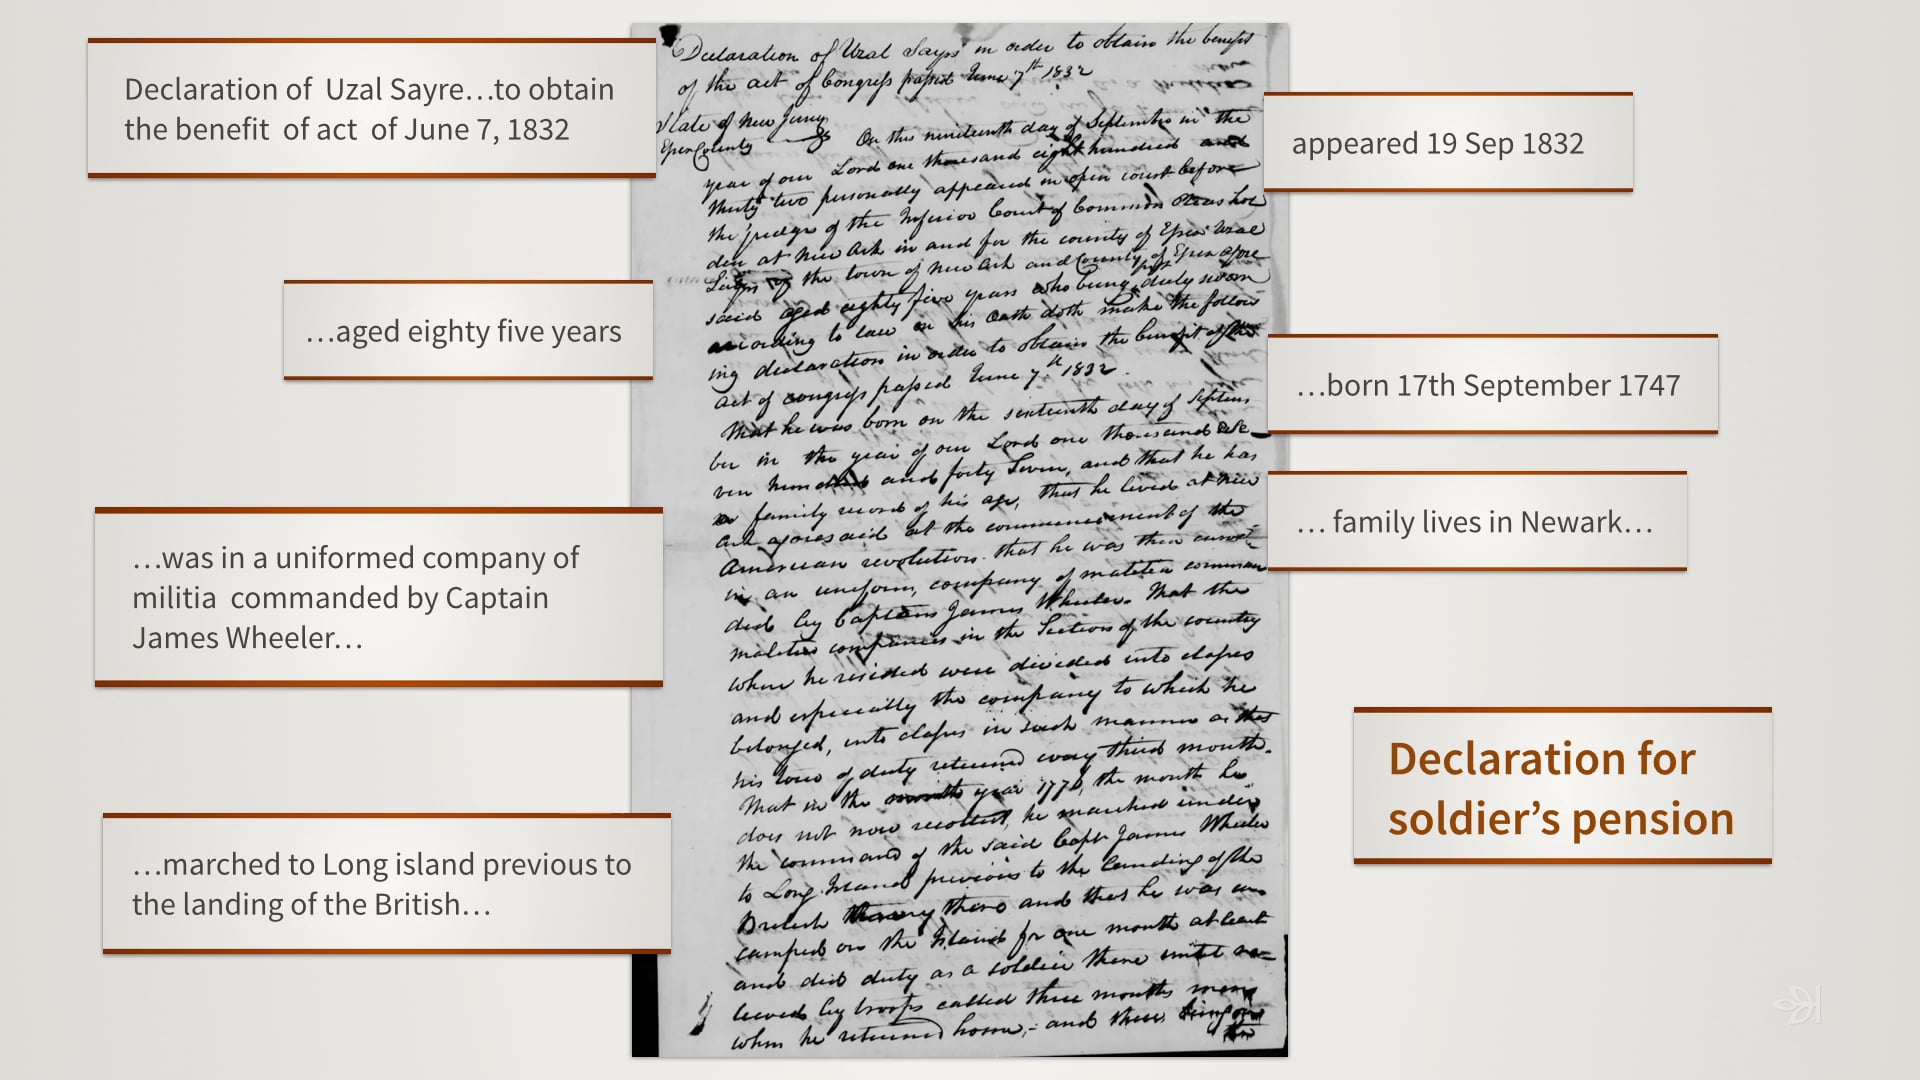 Declaration of Uzal Sayre…to obtain
the benefit of act of June 7, 1832
…aged eighty five years
…was in a uniformed company of
militia commanded by Captain
James Wheeler…
…marched to Long island previous to
the landing of the British…
Declaration of Uzal Sayrs in order to obtain the benefit
of the act of Congress passed June 7th 1832
State of New Jersey
Essex County ss On the nineteenth day of September in the
year of our Lord one thousand eight hundred and
thirty two personally appeared in open court before
the judges of the Inferior Court of Common Pleas hol
den at New Ark in and for the county of Essex Uzal
of the town of New Ark and County of Essex afore
said aged eighty five years who being first duly sworn
according to law on his Oath doth make the follow
ing declaration in order to obtain the benefit of the
act of congress passed June 7th 1832.
That he was born on the sixteenth day of Septem
ber in the year of our Lord one thousand Se
ven hundred and forty Seven, and that he has
no family record of his age, that he lived at New
Ark aforesaid at the commencement of the
American revolution. that he was then
in an uniform company of malitia comman
ded by Captain James Wheeler. That the
malitia companies in the Section of the country
where he resided were divided into classes
and especially the company to which he
belonged, into classes in such manner as that
his tour of duty returned every third month.
That in the year 1776, the month he
does not now recollect, he marched under
the command of the said Capt James Wheeler
to Long Island previous to the landing of the
British there and that he was en
camped on the Island for one month at least
and did duty as a soldier there until re=
leived by troops called three months men
when he returned home,- and there
appeared 19 Sep 1832
…born 17th September 1747
… family lives in Newark…
Declaration for
soldier’s pension